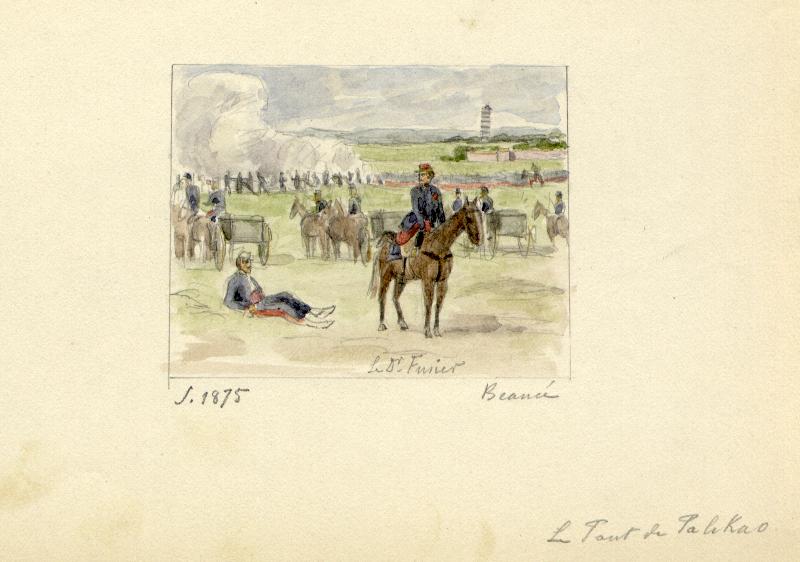 Le Dr. Fusier
S. 1875
Beaucé
Le Pont de PaliKao